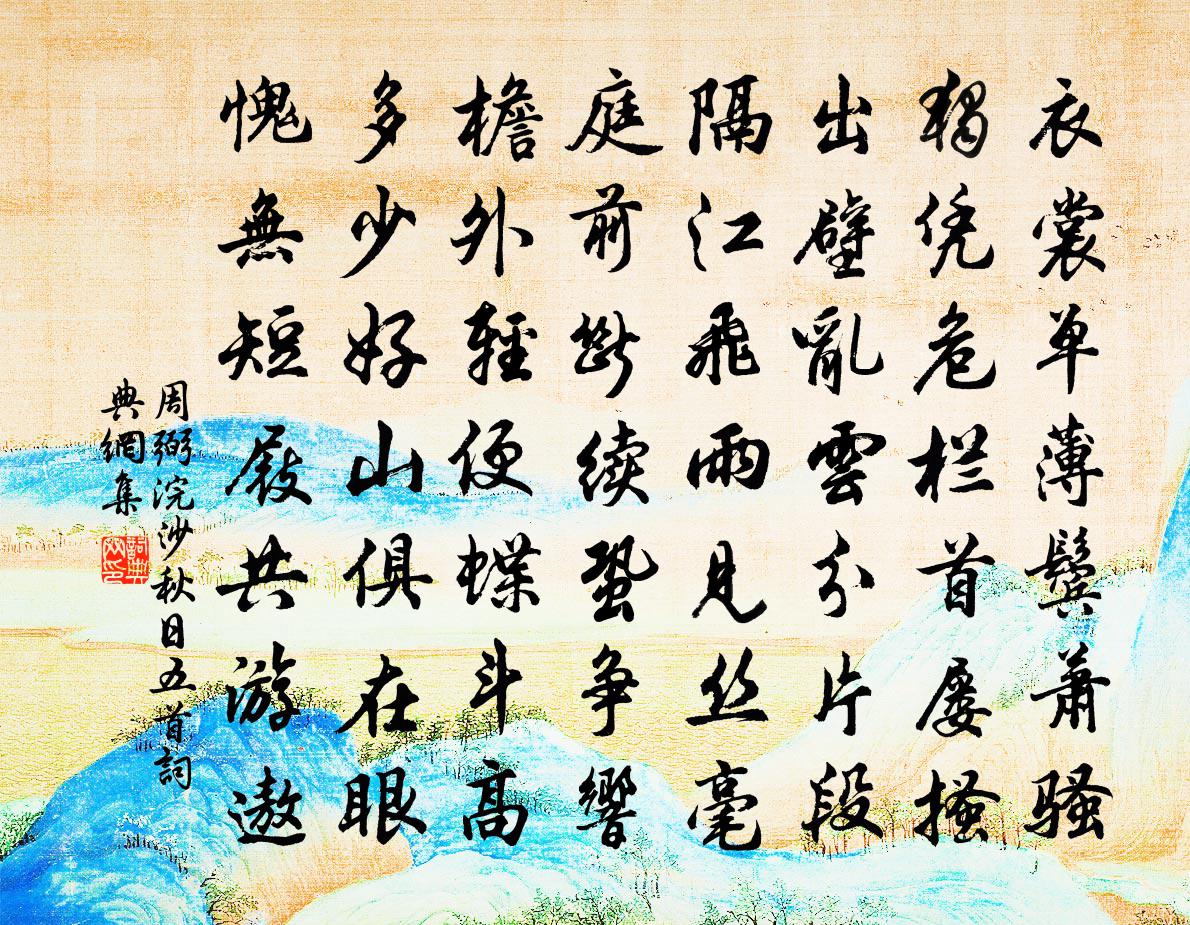 衣裳单薄鬓萧骚
獨凭危栏首屡搔
出壁亂雲分片段
隔江飛雨見丝毫
庭前斷续蛩争響
檐外輕便蝶斗高
多少好山俱在眼
愧無短屐共游遨
周弼浣沙秋日五首詞
典網集
詞典網印